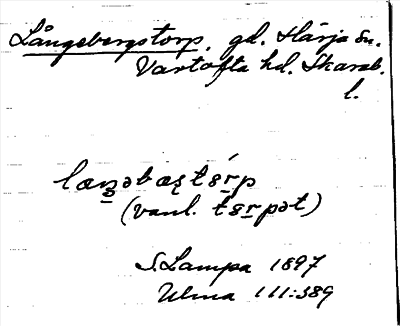 Långebergstorp, gd. Härja sn.
Vartofta hd. Skarab.
l.
læŋəbæʂtɵ́rp
(vanl. tɵrpət)
S. Lampa 1897
Ulma 111:389